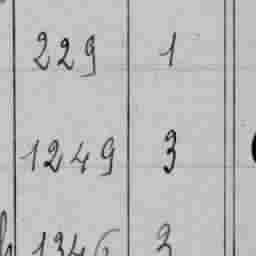 229 1
1249 3
1346 3